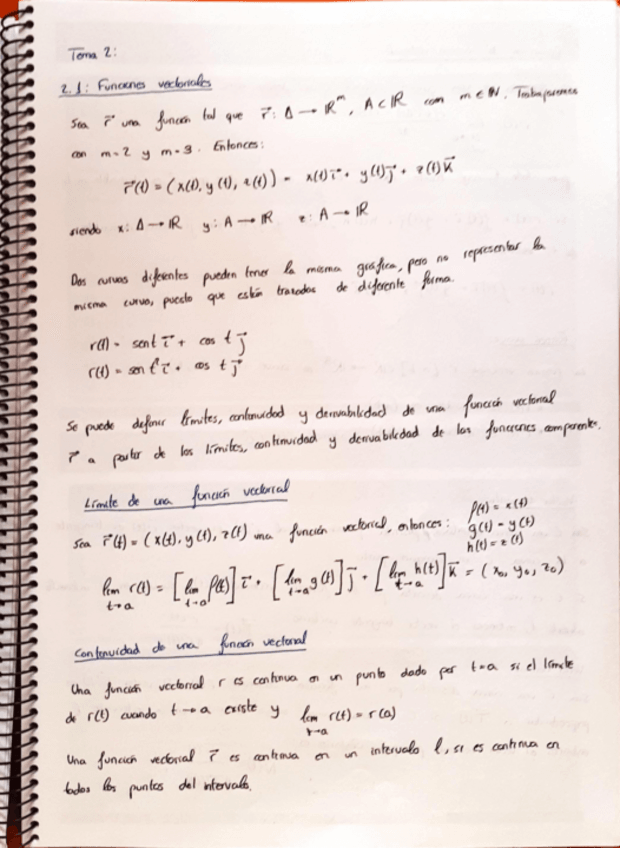 Tema 2:
2.1: Funciones vectoriales
Sea r⃗ una función tal que r⃗: A → ℝᵐ, A ⊂ ℝ con m ∈ ℕ. Trabajaremos
con m=2 y m=3. Entonces:
r⃗(t) = (x(t), y(t), z(t)) = x(t)i⃗ + y(t)j⃗ + z(t)k⃗
siendo x: A → ℝ y: A → ℝ z: A → ℝ
Dos curvas diferentes pueden tener la misma gráfica, pero no representar la
misma curva, puesto que están trazadas de diferente forma.
r(t) = sent i⃗ + cos t j⃗
r(t) = sen t i⃗ + cos t j⃗
Se puede definir límites, continuidad y derivabilidad de una función vectorial
r⃗ a partir de los límites, continuidad y derivabilidad de las funciones componentes.
Límite de una función vectorial
Sea r⃗(t) = (x(t), y(t), z(t)) una función vectorial, entonces:
f(t) = x(t)
g(t) = y(t)
h(t) = z(t)
lim t→a r(t) = [lim t→a f(t)] i⃗ + [lim t→a g(t)] j⃗ + [lim t→a h(t)] k⃗ = (x₀, y₀, z₀)
Continuidad de una función vectorial
Una función vectorial r es continua en un punto dado por t=a si el límite
de r(t) cuando t→a existe y lim t→a r(t) = r(a)
Una función vectorial r⃗ es continua en un intervalo I, si es continua en
todos los puntos del intervalo.